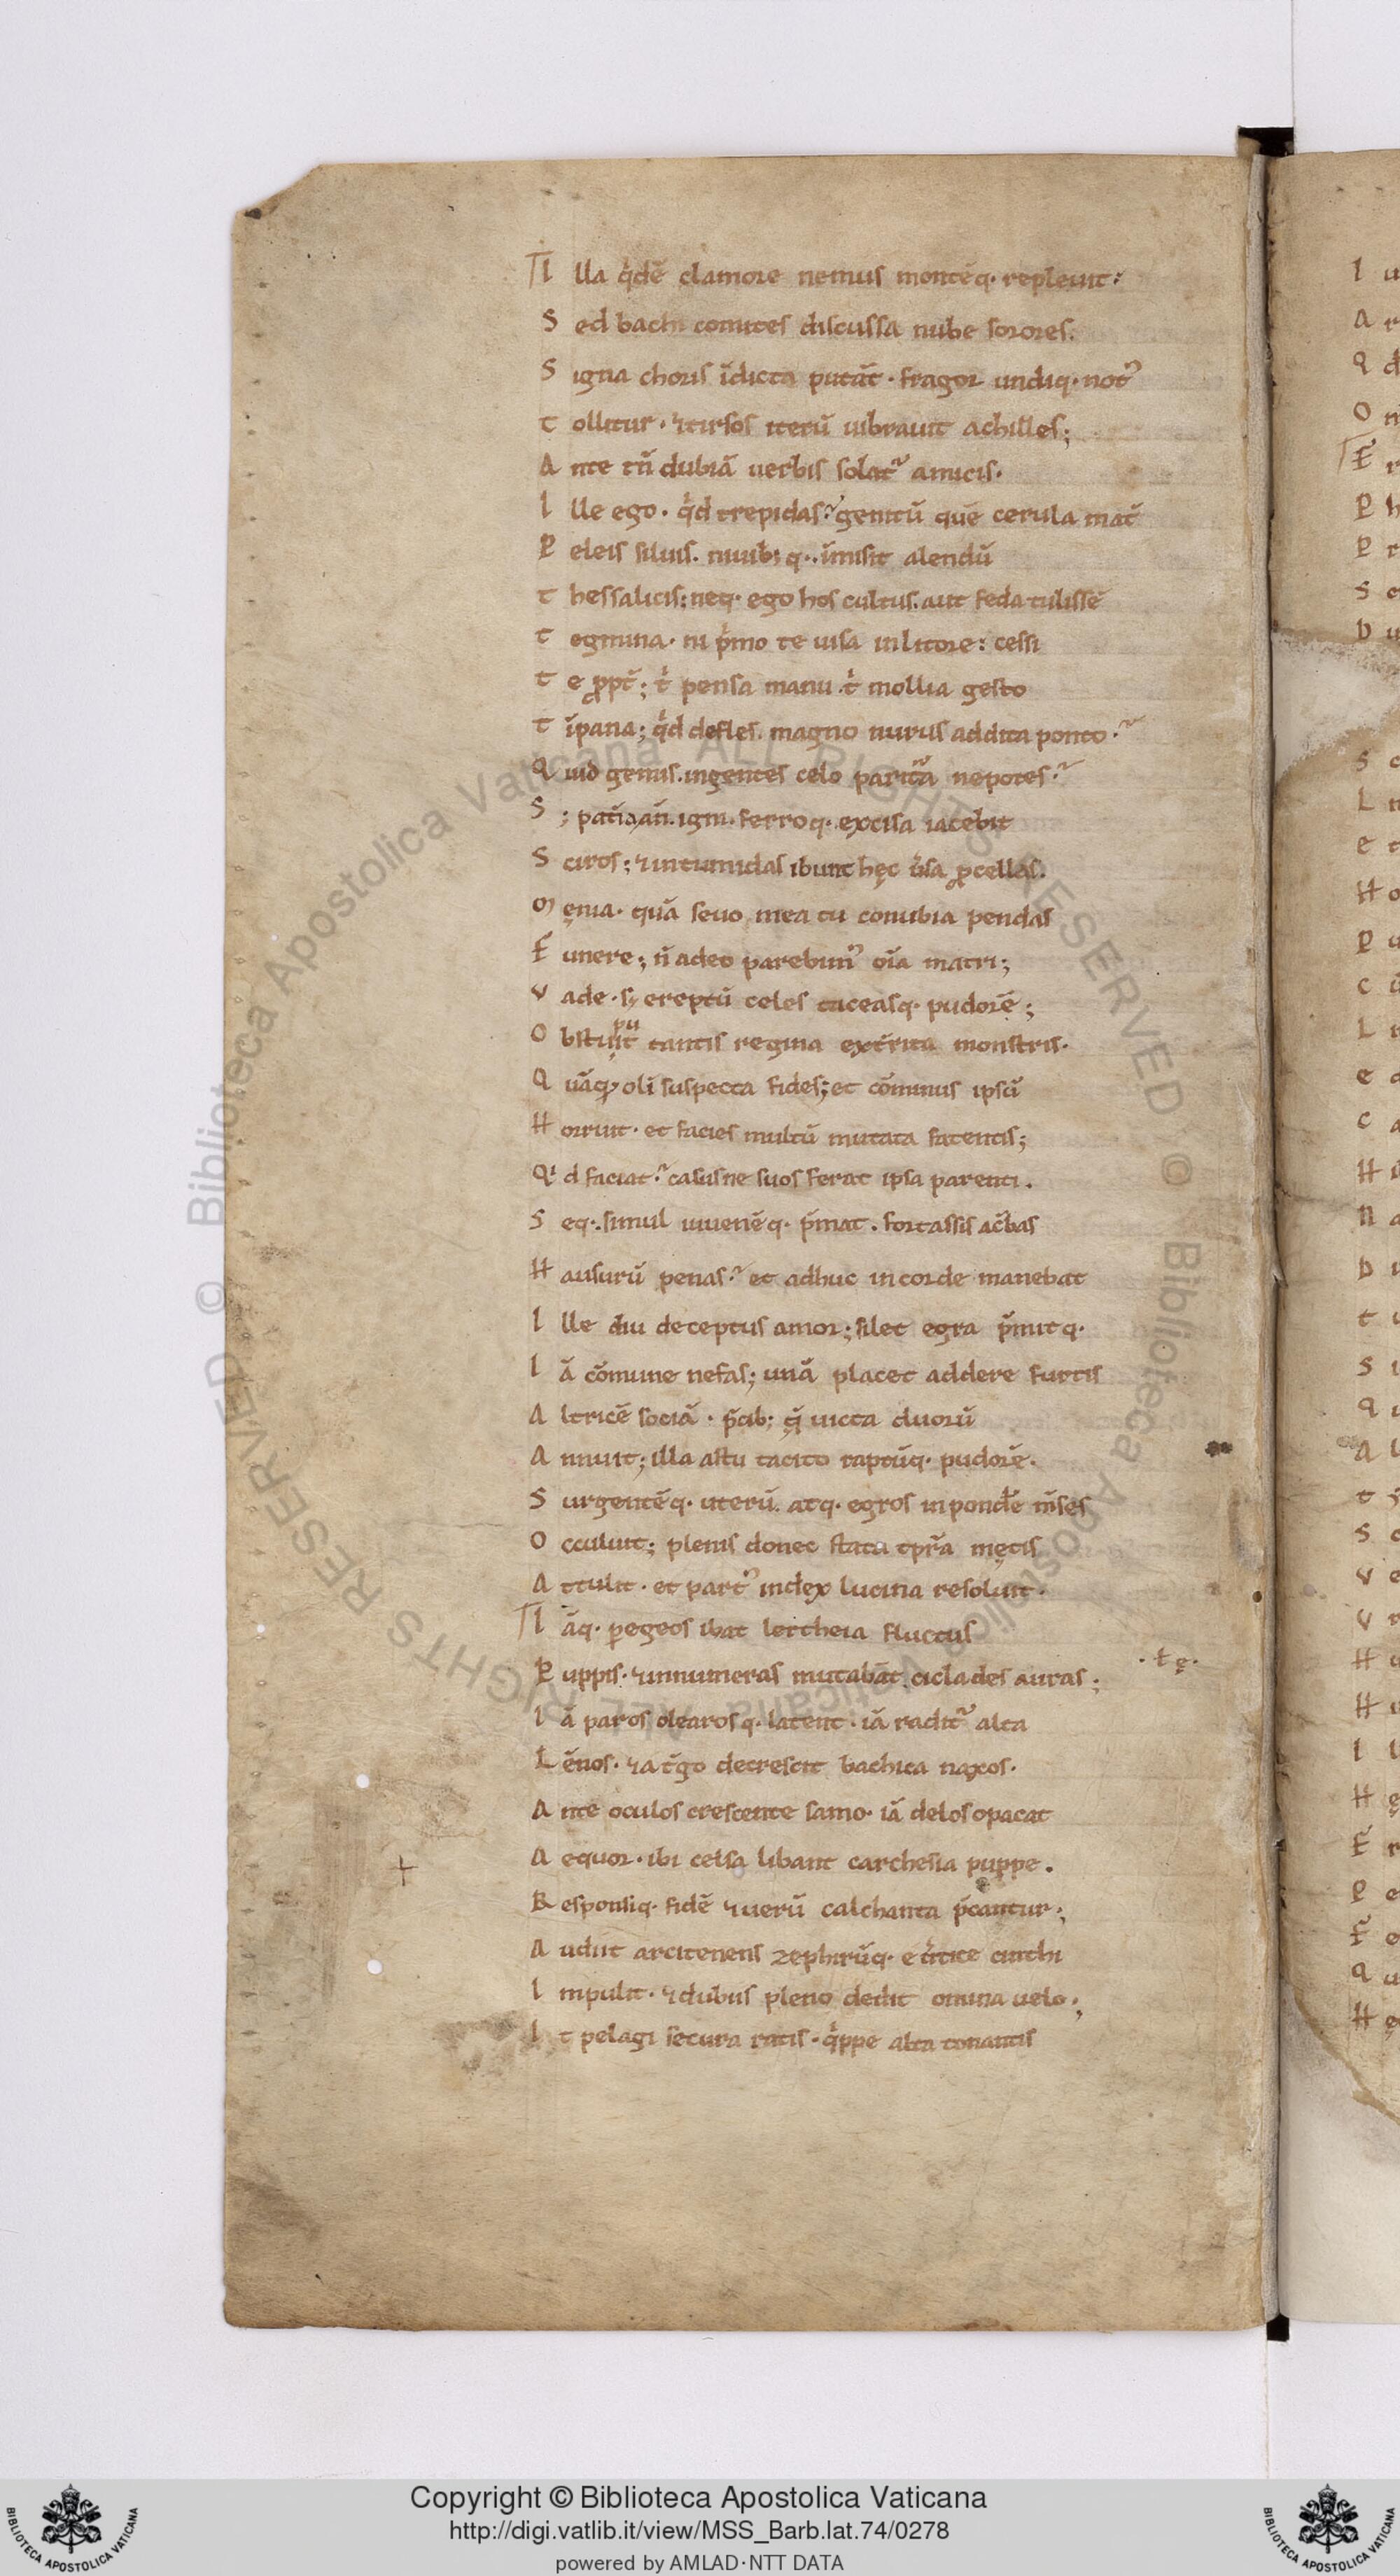 I lla q̓dē clamore nemus montēq· repleuit:
S ed bachi comites discussa nube sorores.
S igna choris īdicta putāt · fragor undiq· not᷑
T ollitur · ⁊tirsos iterū uibrauit achilles;
A nte tn̄ dubiā uerbis solat᷑ amicis·
I lle ego · q̓d trepidas? genitū quē cerula mat̄
P eleis siluis. niuib; q· īmisit alendū
T hessalicis; neq· ego hos cultus. aut feda tulissē
T egmina· ni p̓mo te uisa in litore: cessi
T e ꝓpt̄; t̓ pensa manu · t̓ mollia gesto
T īpana; q̓d defles. magno nurus addita ponto?
Q uid gemis. ingentes celo paritura nepotes?
S ; pat̄ an̄. igni· ferroq· excisa iacebit
S ciros; ⁊in tumidas ibunt hęc ūsa ꝓcellas.
M ęnia· quā seuo mea tu conubia pendas
F unere; n̄ adeo parebim᷒ oīa matri;
V ade · s; ereptū celes taceasq· pudorē;
O bstupuit tantis regina ext̄rita monstris·
Q uāq̄ oli suspecta fides; et cōminus ipsū
H orruit· et facies multū mutata fatentis;
Qi d faciat? casusne suos ferat ipsa parenti.
S eq·. simul iuuenēq· p̄mat. fortassis ac̄bas
H ausurū penas? et adhuc in corde manebat
I lle diu deceptus amor; silet egra p̄mitq·
I ā cōmune nefas; unā placet addere furtis
A ltricē sociā · p̄cib; q̄ uicta duorū
A nnuit; illa astu tacito raptūq· pudorē.
S urgentēq· uterū. atq· egros in pond̄e m̄ses
O cculuit; plenis donec stata tp̄ra mętis
A ttulit · et part᷒ index lucina resoluit·
I āq· ꝑegeos ibat lertheia fluctus
P uppis· ⁊innumeras mutabāt ciclades auras;
· ł ę ·
I ā paros olearosq· latent · iā radit᷑ alta
L ēnos· ⁊a t̄go decrescit bachica naxos·
A nte oculos crescente samo· iā delos opacat
A equor· ibi celsa libant carchesia puppe.
R esponsiq· fidē ⁊uerū calchanta p̄cantur;
A udiit arcitenens zephirūq· e u̓tice cinthi
I mpulit· ⁊dubiis pleno dedit omina uelo;
I t pelagi secura ratis· q̓ppe alta tonantis
Copyright © Biblioteca Apostolica Vaticana
http://digi.vatlib.it/view/MSS_Barb.lat.74/0278
powered by AMLAD·NTT DATA